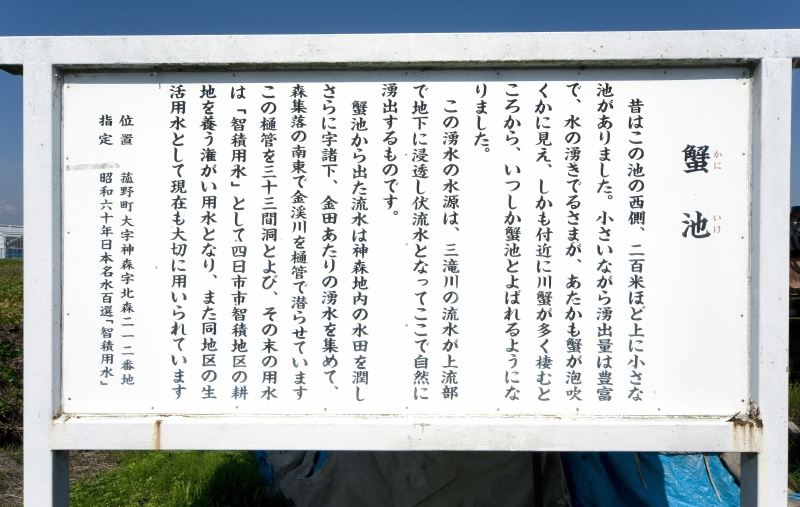 蟹池
かに
いけ
昔はこの池の西側、二百米ほど上に小さな
池がありました。小さいながら湧出量は豊富
で、水の湧きでるさまが、あたかも蟹が泡吹
くかに見え、しかも付近に川蟹が多く棲むと
ころから、いつしか蟹池とよばれるようにな
りました。
この湧水の水源は、三滝川の流水が上流部
で地下に浸透し伏流水となってここで自然に
湧出するものです。
蟹池から出た流水は神森地内の水田を潤し
さらに字諸下、金田あたりの湧水を集めて、
森集落の南東で金渓川を樋管で潜らせています
この樋管を三十三間洞とよび、その末の用水
は「智積用水」として四日市市智積地区の耕
地を養う潅がい用水となり、また同地区の生
活用水として現在も大切に用いられています
位置 菰野町大字神森字北森二一二番地
指定 昭和六十年日本名水百選「智積用水」